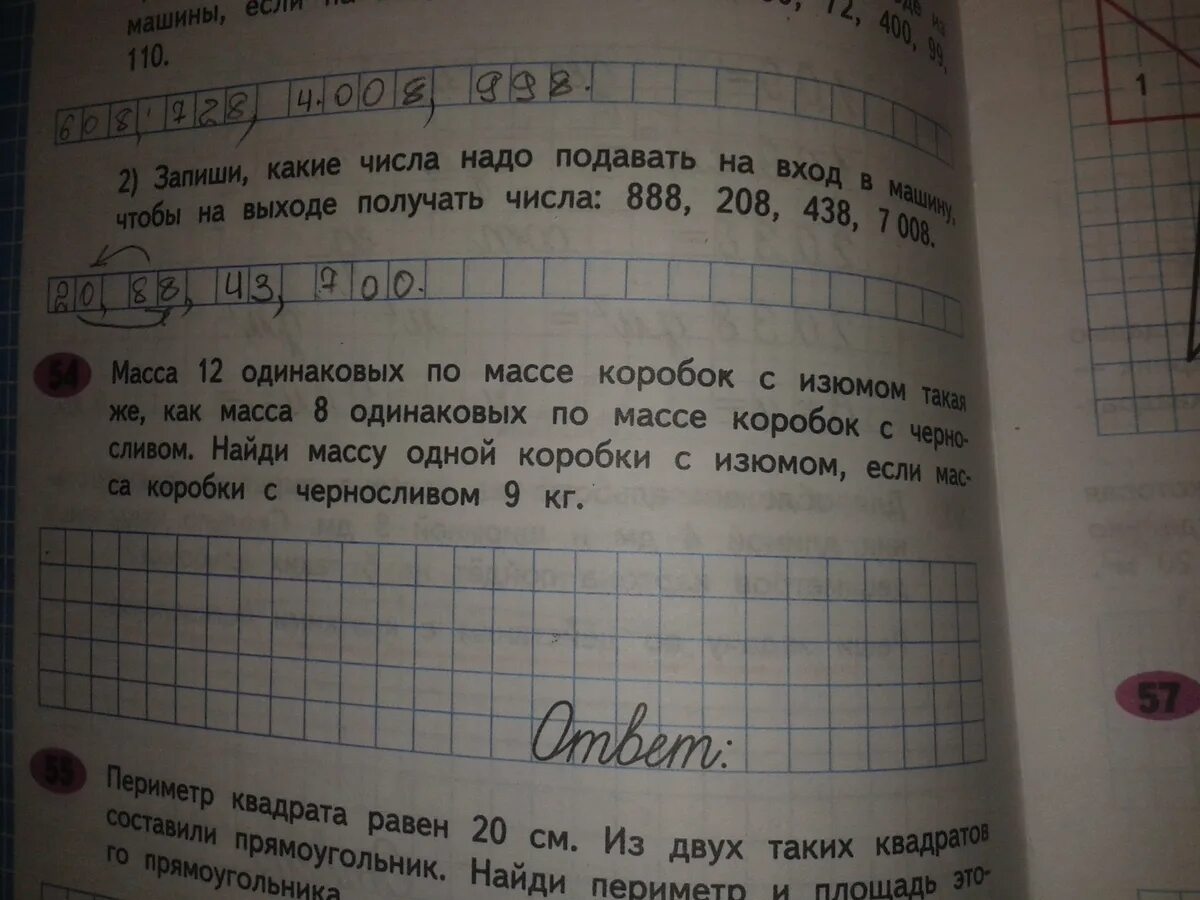 машины, если на
72, 400, 99,
110.
608, 728, 4.008, 998.
2) Запиши, какие числа надо подавать на вход в машину,
чтобы на выходе получать числа: 888, 208, 438, 7 008.
20, 88, 43, 700.
54 Масса 12 одинаковых по массе коробок с изюмом такая
же, как масса 8 одинаковых по массе коробок с черно-
сливом. Найди массу одной коробки с изюмом, если мас-
са коробки с черносливом 9 кг.
Ответ:
55 Периметр квадрата равен 20 см. Из двух таких квадратов
составили прямоугольник. Найди периметр и площадь это-
го прямоугольника
1
57